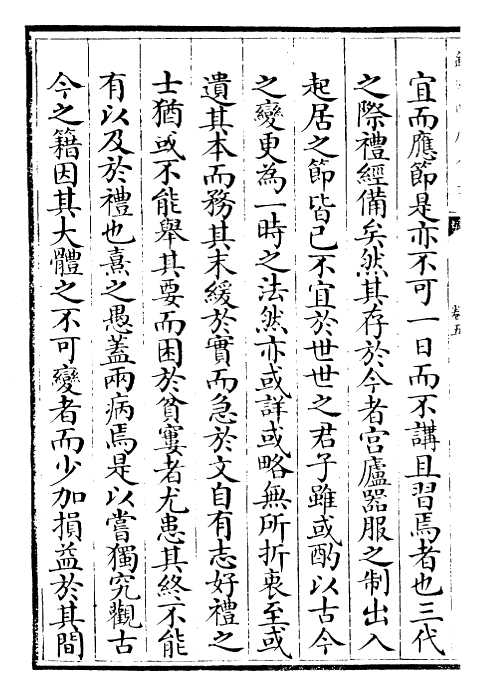 宜而應節是亦不可一日而不講且習焉者也三代
之際禮經備矣然其存於今者宫廬器服之制出入
起居之節皆已不宜於世世之君子雖或酌以古今
之變更為一時之法然亦或詳或略無所折衷至或
遺其本而務其末緩於實而急於文自有志好禮之
士猶或不能舉其要而困於貧窶者尤患其終不能
有以及於禮也熹之愚蓋兩病焉是以嘗獨究觀古
今之籍因其大體之不可變者而少加損益於其間
卷五